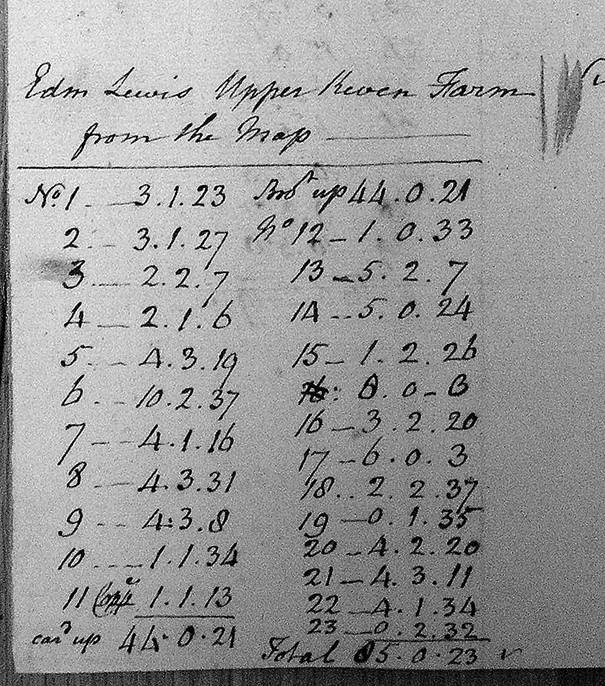 Edm Lewis Upper Keven Farm
from the Map
No. 1 - 3.1.23
2 -- 3.1.27
3 -- 2.2.7
4 -- 2.1.6
5 -- 4.3.19
6 -- 10.2.37
7 -- 4.1.16
8 -- 4.3.31
9 -- 4:3.8
10 -- 1.1.34
11 1.1.13
card up 44.0.21
Brot up 44.0.21
No 12 - 1.0.33
13 - 5.2.7
14 -- 5.0.24
15 - 1.2.26
16 - 3.2.20
17 - 6.0.3
18 .. 2.2.37
19 - 0.1.35
20 - 4.2.20
21 - 4.3.11
22 - 4.1.34
23 - 0.2.32
Total 85.0.23